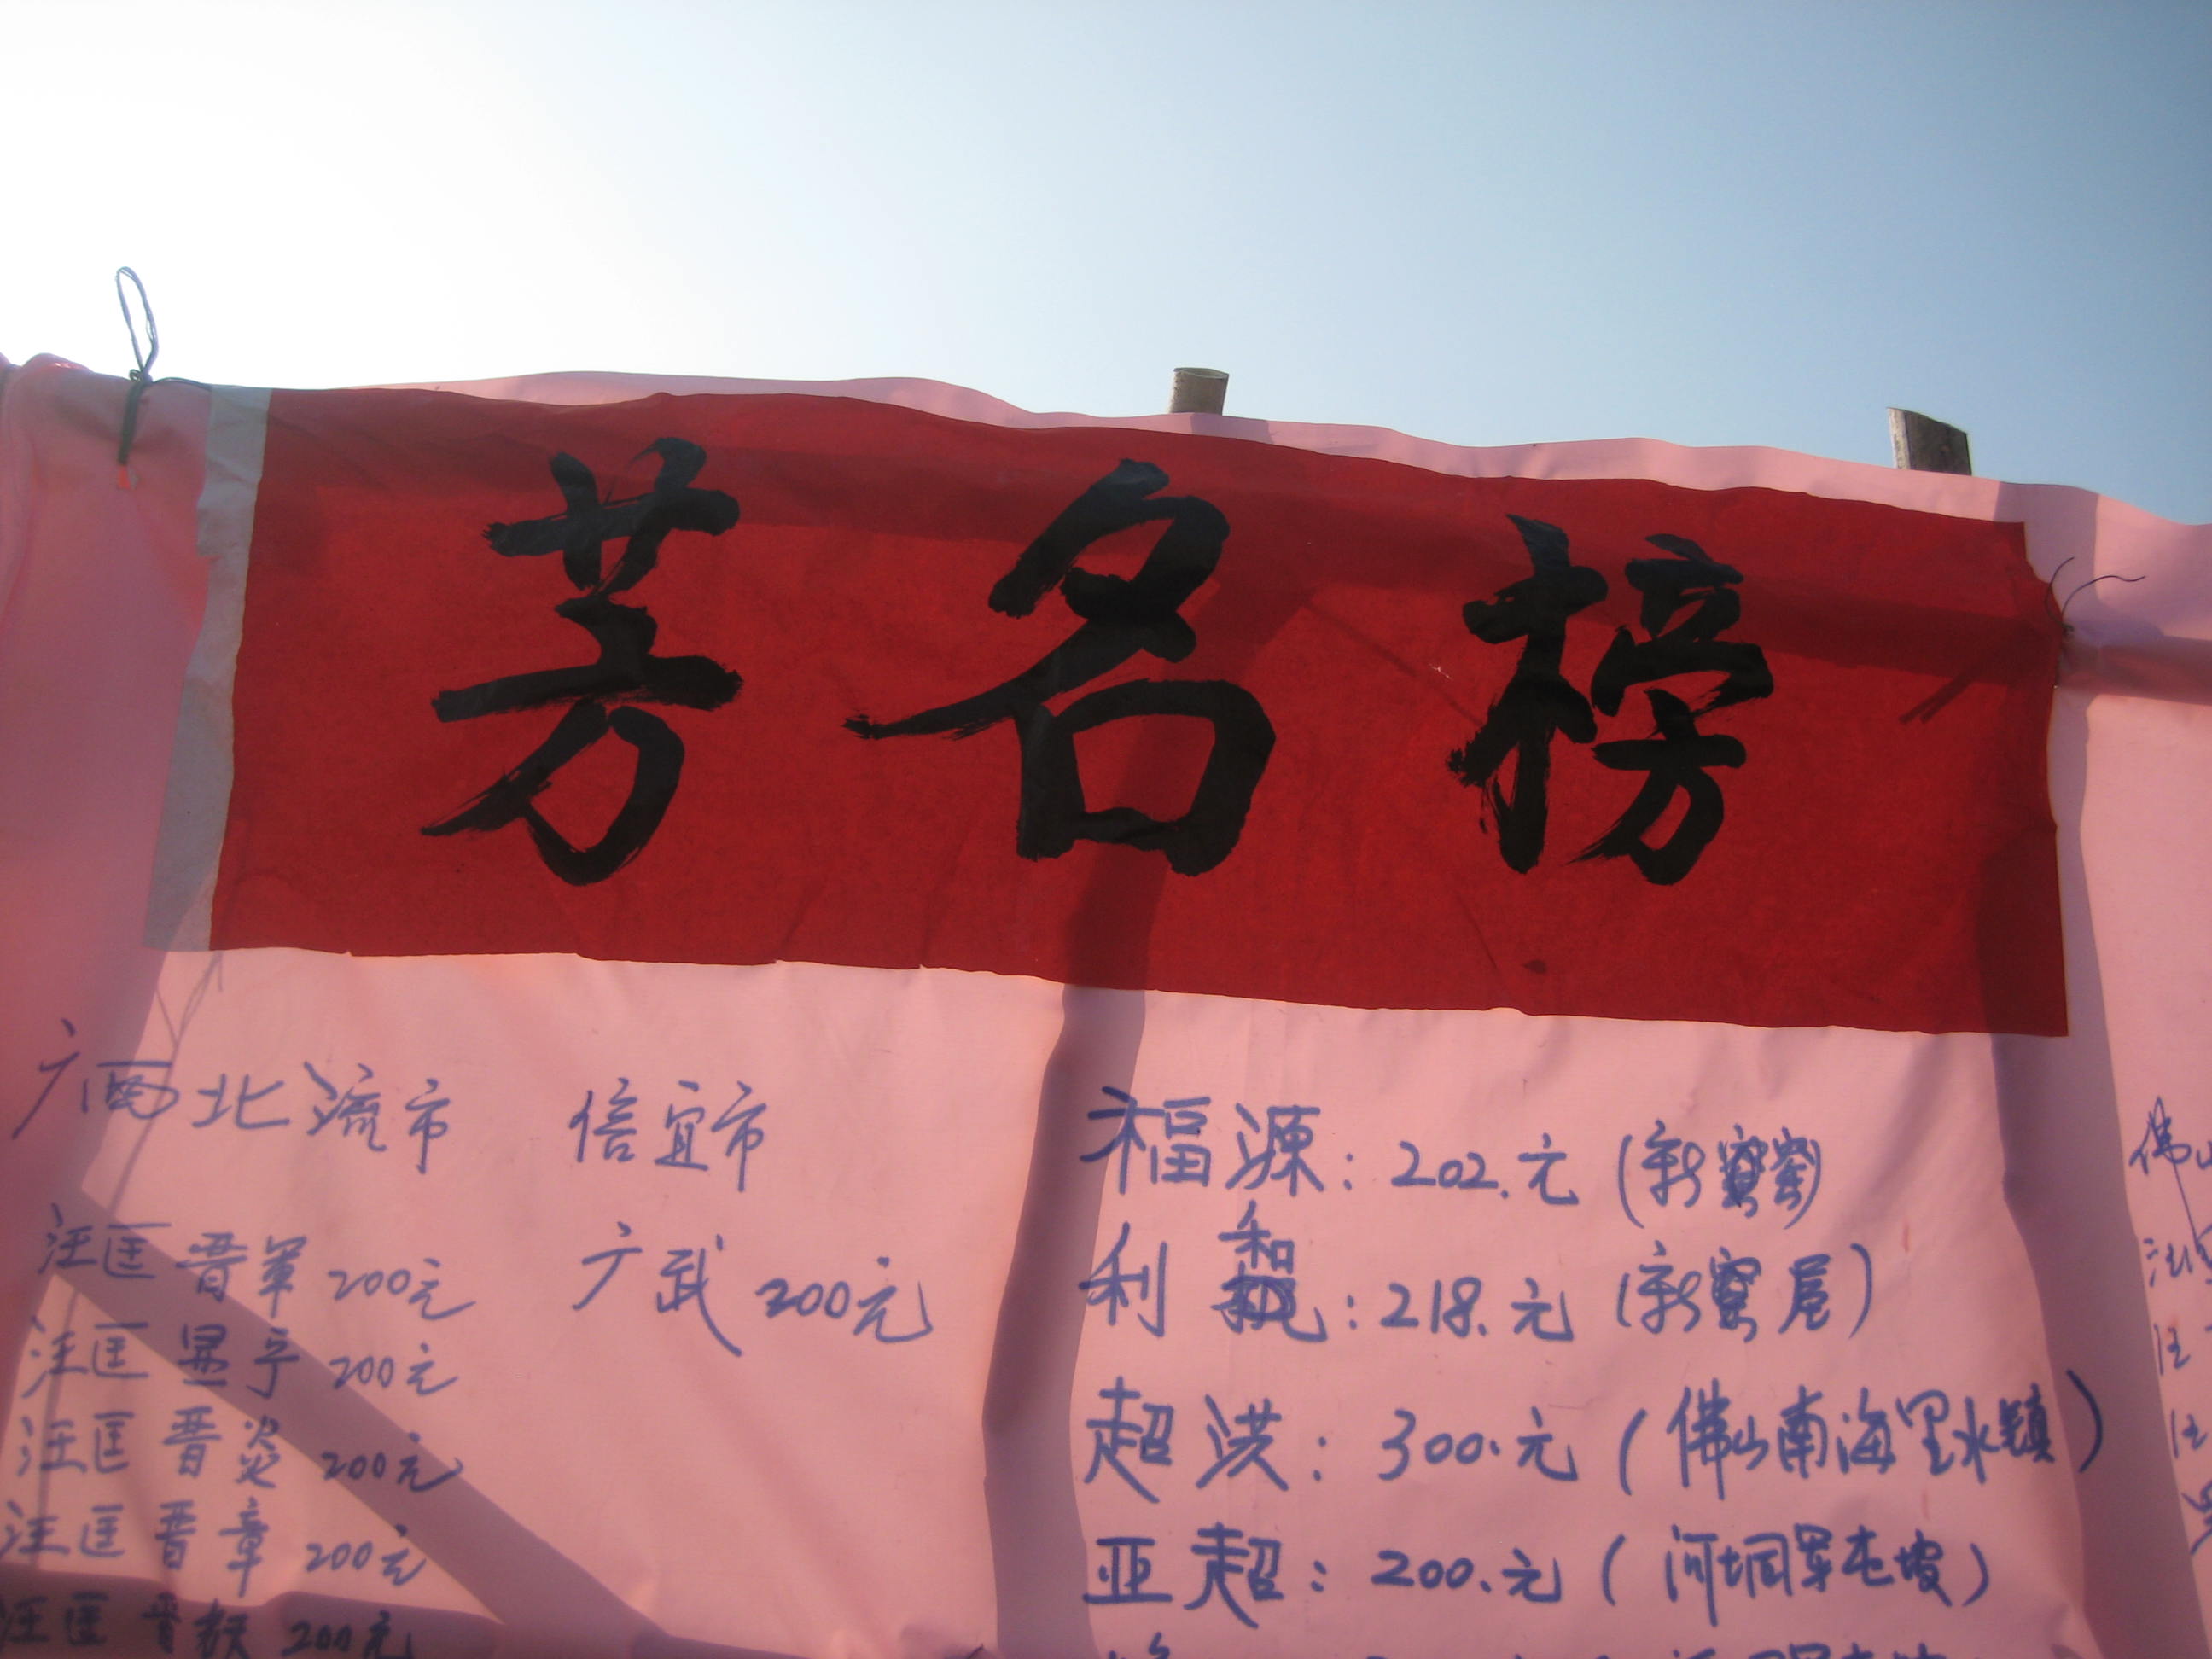 芳名榜
广西北流市
汪匡晋军 200元
汪匡显宇 200元
汪匡晋炎 200元
汪匡晋章 200元
汪匡晋 200元
信宜市
广武 200元
福源：202.元（新寮）
利和：218.元（新寮尾）
超洪：300.元（佛山南海里水镇）
亚超：200.元（河垌军屯坡）